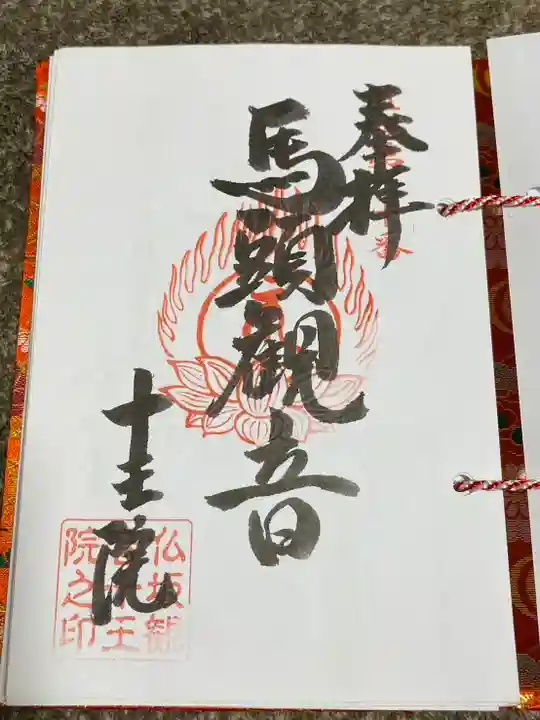 奉拝
馬頭観音
十王院
仏坂観
院之印